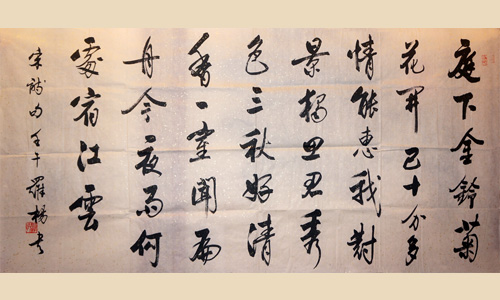 庭下金鈴菊
花開已十分多
情能惠我對
景獨思君秀
色三秋好清
香一室聞扁
舟今夜雨何
處宿江雲
宋詩句壬午羅楊書